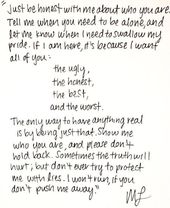 "Just be honest with me about who you are.
Tell me when you need to be alone, and
let me know when I need to swallow my
pride. If I am here, it's because I want
all of you:
the ugly,
the honest,
the best,
and the worst.
The only way to have anything real
is by being just that. Show me
who you are, and please don't
hold back. Sometimes the truth will
hurt, but don't ever try to protect
me with lies. I won't run, if you
don't push me away."